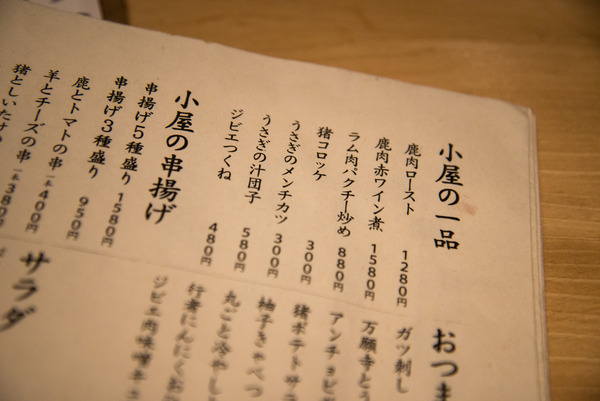 小屋の一品
鹿肉ロースト 1280円
鹿肉赤ワイン煮 1580円
ラム肉パクチー炒め 880円
猪コロッケ 300円
うさぎのメンチカツ 300円
うさぎの汁団子 580円
ジビエつくね 480円
小屋の串揚げ
串揚げ5種盛り 1580円
串揚げ3種盛り 950円
鹿とトマトの串 一本400円
羊とチーズの串 一本380円
猪としいたけの
おつま
ガツ刺し
万願寺とう
アンチョビ
猪ポテトサラ
柚子きゃべつ
丸ごと冷やし
行者にんにく
ジビエ肉味噌キュ
サラダ